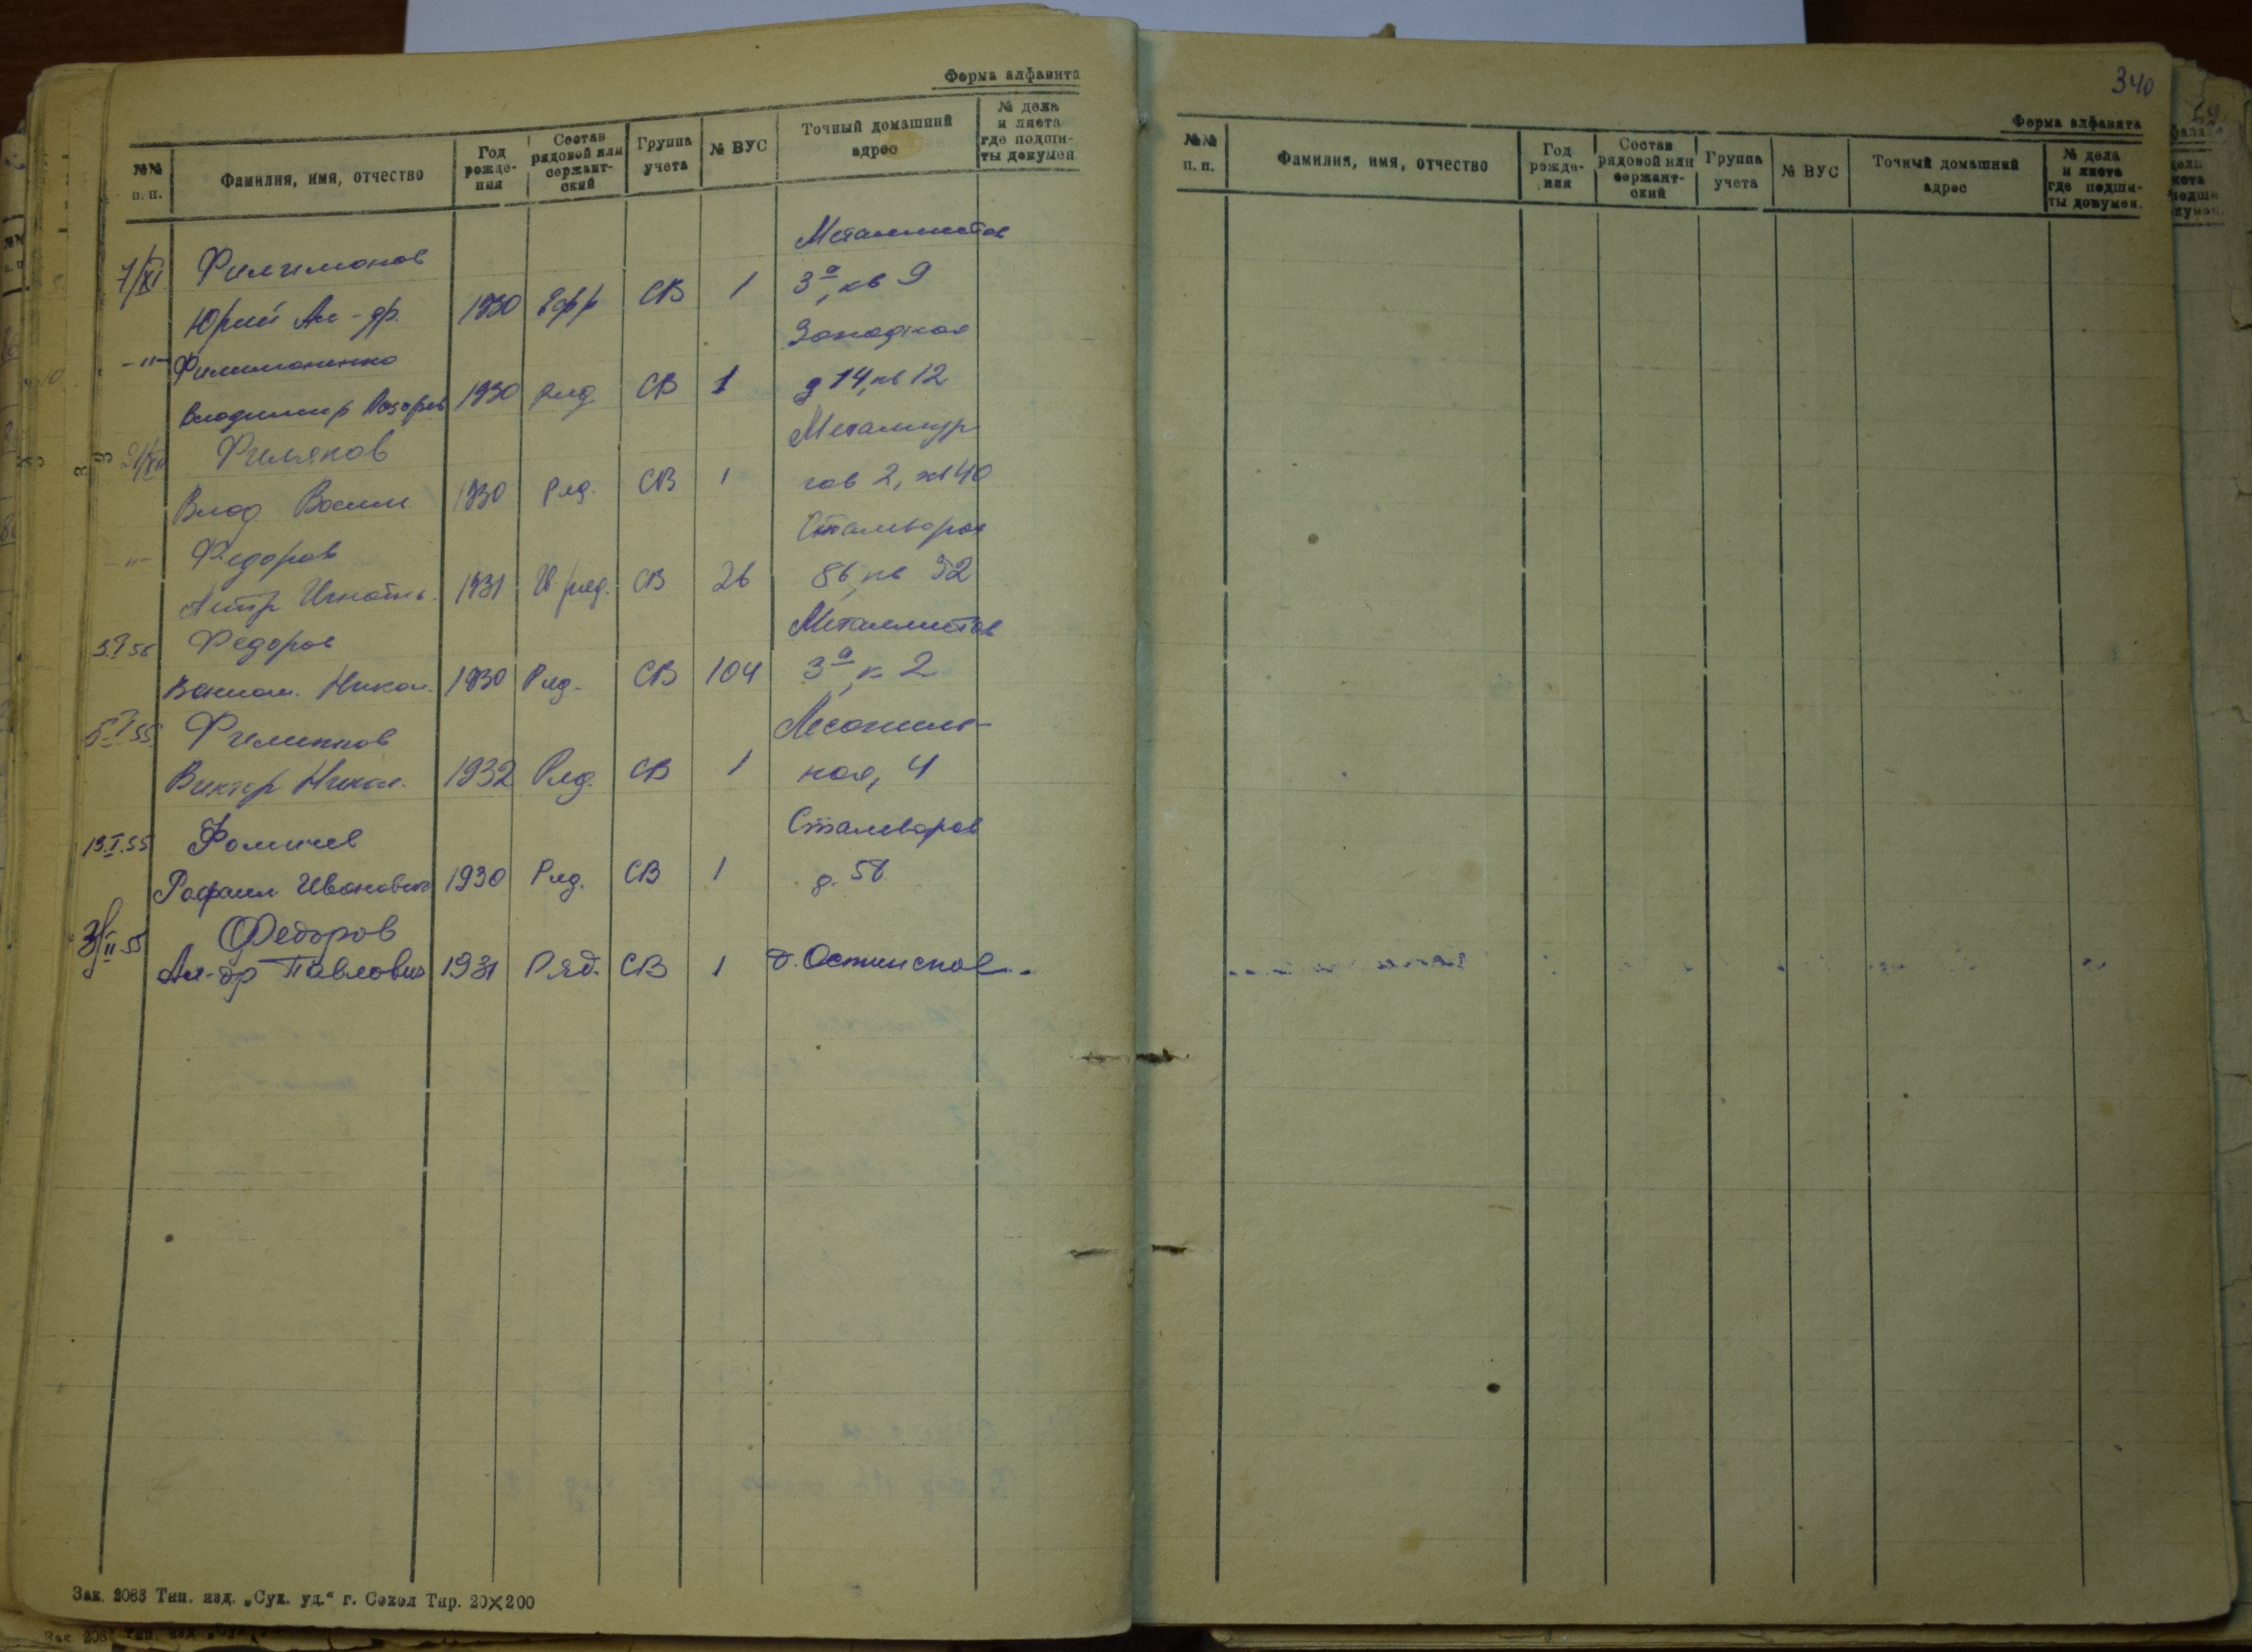 Форма алфавита
№№ п. п. Фамилия, имя, отчество Год рожде-ния Состав рядовой или сержант-ский Группа учета № ВУС Точный домашний адрес № дела и листа где подши-ты докумен.
7/XI Филимонов Металлистов
Юрий Ал-др. 1930 Ефр СВ 1 3а, кв 9
-"- Филимоненко Западная
Владимир 1930 ряд. СВ 1 д 14, кв 12
Филяков Металлур
Влад. Васил. 1930 Ряд. СВ 1 гов 2, кв 40
-"- Федоров Сталеваров
1931 СВ 26 8б, кв 32
Федоров Металлистов
Никол. 1930 Ряд. СВ 104 3а, к 2
5.I 55 Филиппов Лесопиль-
Виктор Никол. 1932 Ряд. СВ 1 ная, 4
13.I.55 Фомичев Сталеваров
Рафаил Иванович 1930 Ряд. СВ 1
II 55 Федоров
Ал-др Павлович 1931 Ряд. СВ 1
Зак. 2083 Тип. изд. „Сук. уд.“ г. Сокол Тир. 20×200
340
Форма алфавита
№№ п. п. Фамилия, имя, отчество Год рожде-ния Состав рядовой или сержант-ский Группа учета № ВУС Точный домашний адрес № дела и листа где подши-ты докумен.